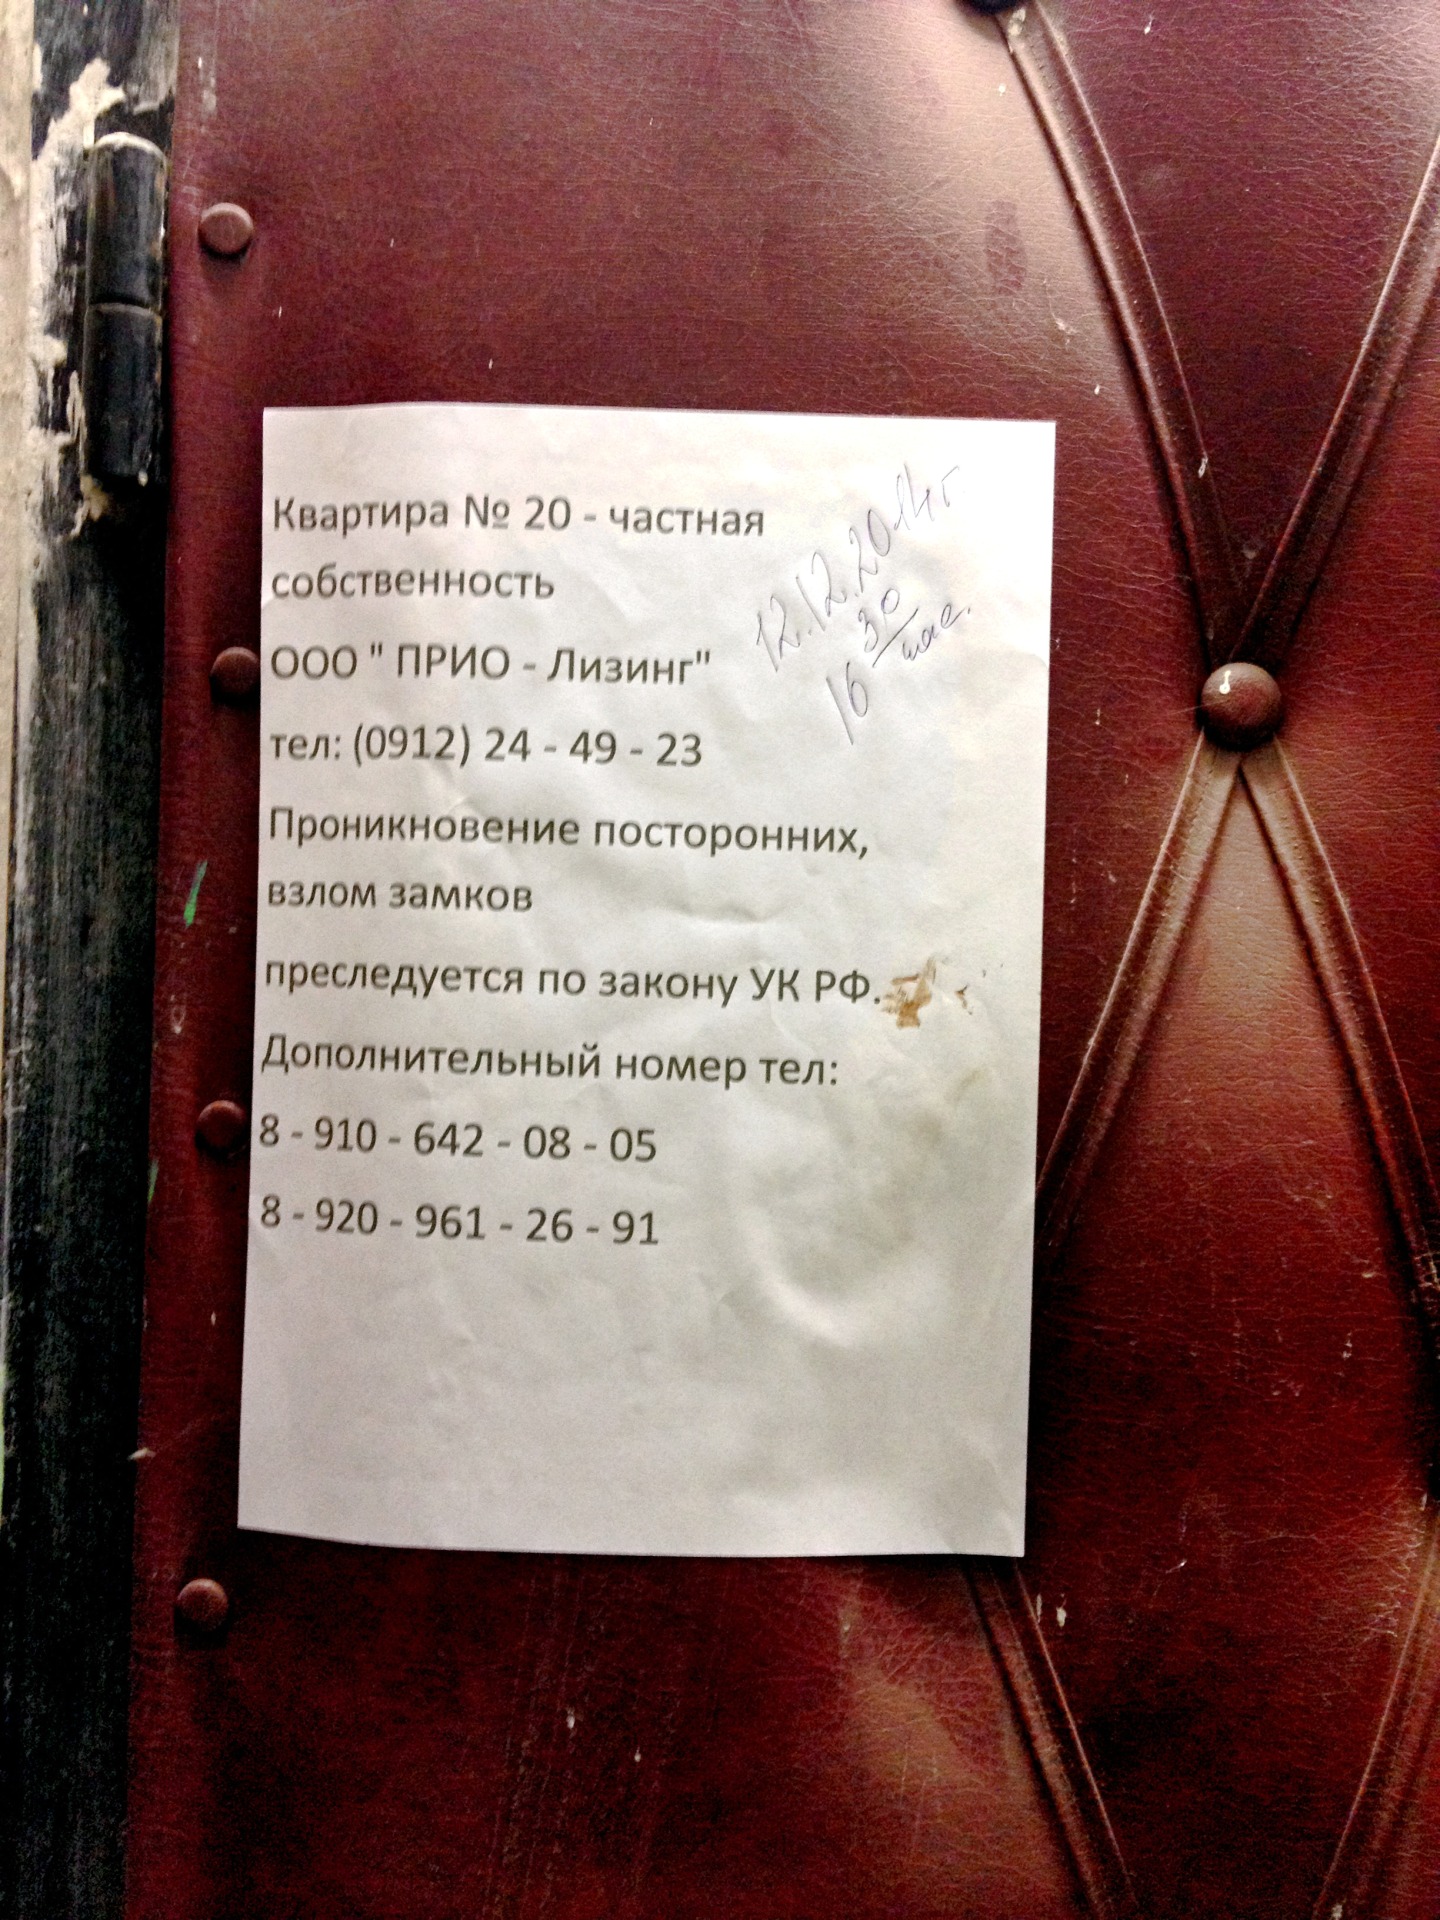 Квартира № 20 - частная
собственность
ООО " ПРИО - Лизинг"
тел: (0912) 24 - 49 - 23
Проникновение посторонних,
взлом замков
преследуется по закону УК РФ.
Дополнительный номер тел:
8 - 910 - 642 - 08 - 05
8 - 920 - 961 - 26 - 91
12.12.2014г.
16 30 час.